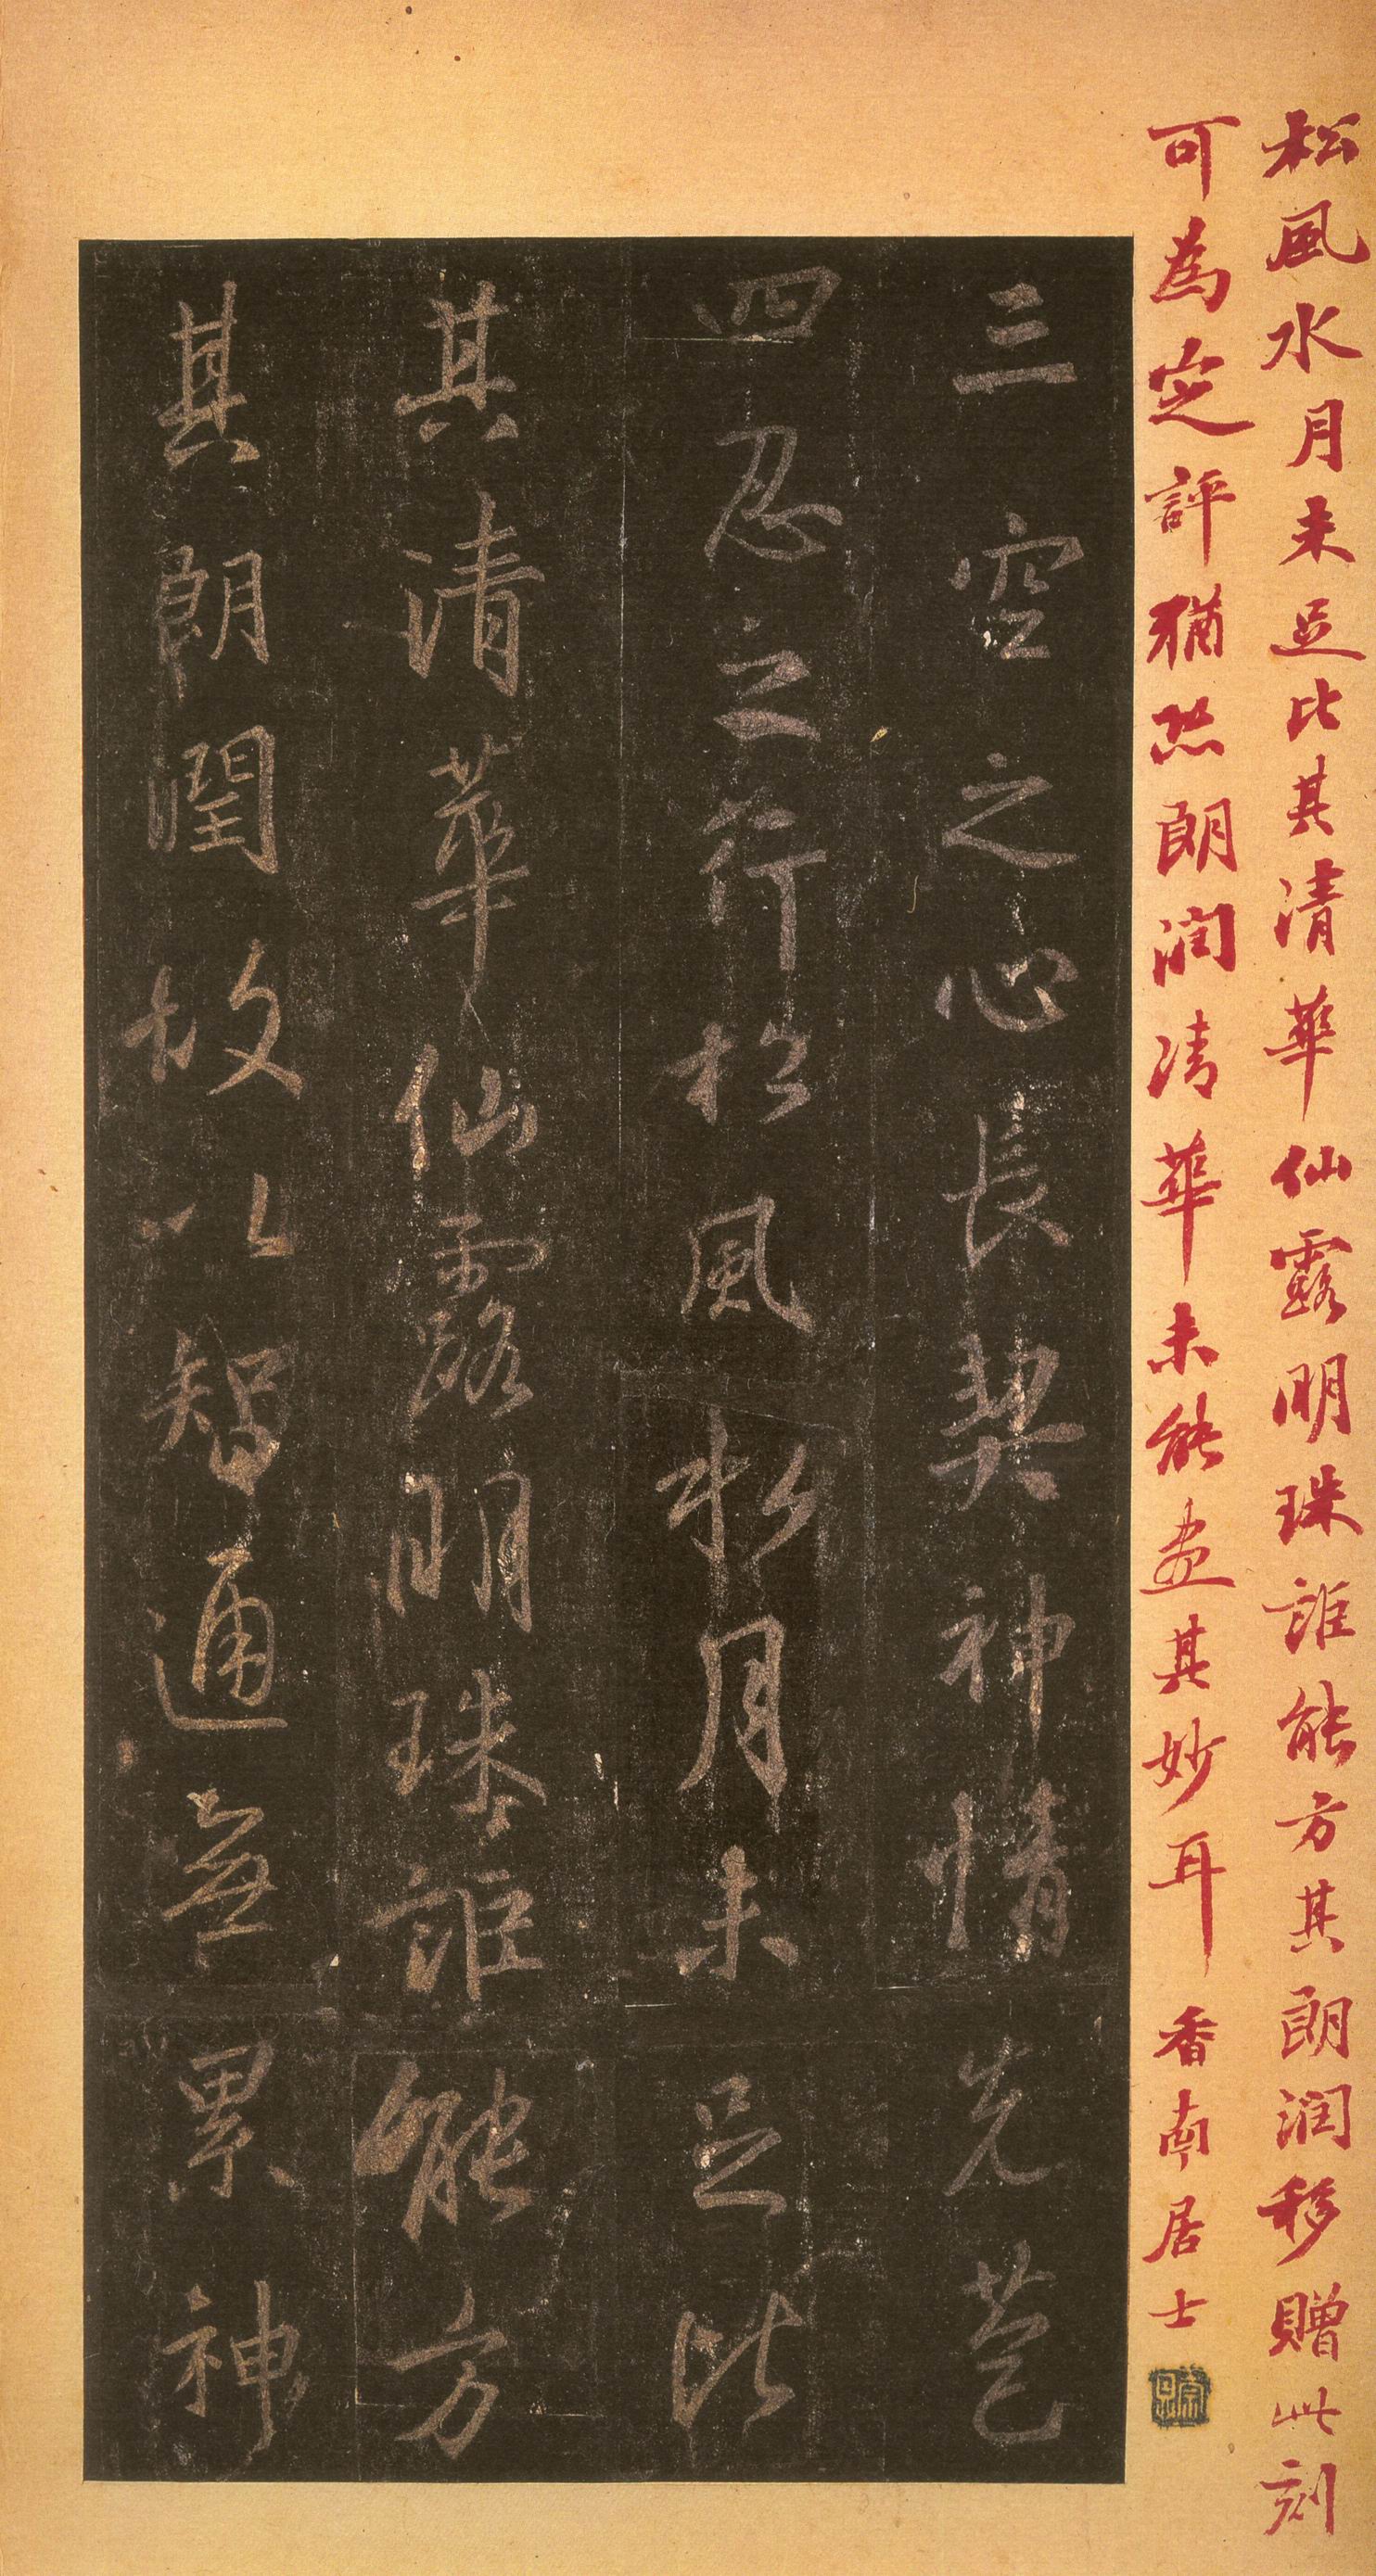 松風水月未足比其清華仙露明珠誰能方其朗润移贈此刻
可為定評猶恐朗润清華未能盡其妙耳 香南居士
三空之心長契神情先苞
四忍之行松風水月未足比
其清華仙露明珠誰能方
其朗潤故以智通無累神